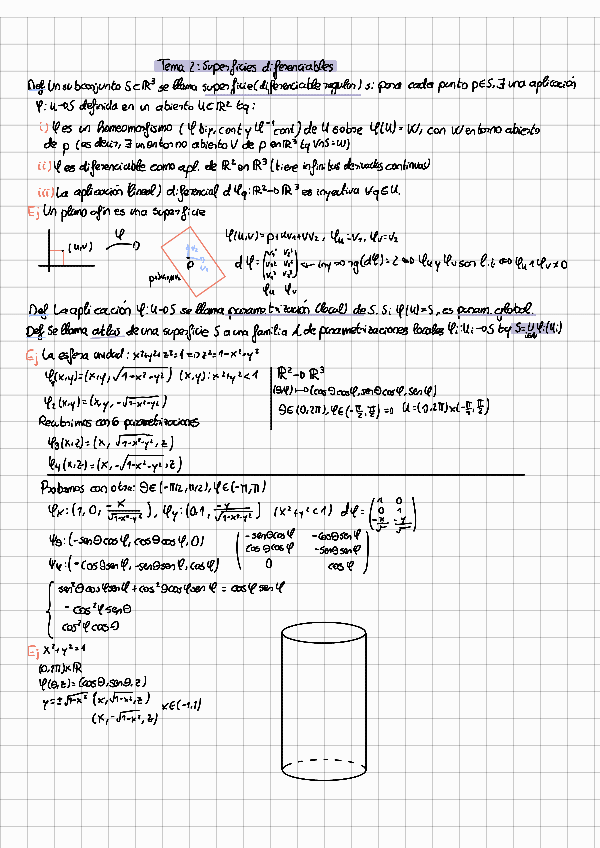 Tema 2: Superficies diferenciables
Def Un subconjunto S⊂ℝ³ se llama superficie (diferenciable regular) si para cada punto p∈S, ∃ una aplicación
φ: U→S definida en un abierto U⊂ℝ² tq:
i) φ es un homeomorfismo (φ biy, cont y φ⁻¹ cont) de U sobre φ(U)=W, con W entorno abierto
de p (es decir, ∃ un entorno abierto V de p en ℝ³ tq V∩S=W)
ii) φ es diferenciable como apl. de ℝ² en ℝ³ (tiene infinitas derivadas continuas)
iii) La aplicación (lineal) diferencial dφq: ℝ²→ℝ³ es inyectiva ∀q∈U.
Ej Un plano afín es una superficie
(u,v) φ p v₂ v₁
φ(u,v)=p+uv₁+vv₂, φu=v₁, φv=v₂
dφ=(v₁¹ v₂¹ v₁² v₂² v₁³ v₂³) ← iny ⇒ rg(dφ)=2 ⇔ φu y φv son l.i ⇔ φu∧φv≠0
φu φv
Def La aplicación φ: U→S se llama parametrización (local) de S. Si φ(U)=S, es param. global.
Def Se llama atlas de una superficie S a una familia de parametrizaciones locales φi: Ui→S tq S=∪φi(Ui)
Ej La esfera unidad: x²+y²+z²=1 ⇒ z²=1-x²-y²
φ₁(x,y)=(x,y,√1-x²-y²) (x,y): x²+y²<1
φ₂(x,y)=(x,y,-√1-x²-y²)
Recubrimos con 6 parametrizaciones
φ₃(x,z)=(x,√1-x²-y²,z)
φ₄(x,z)=(x,-√1-x²-y²,z)
ℝ²→ℝ³
(θ,φ)↦(cosθcosφ,senθcosφ,senφ)
θ∈(0,2π), φ∈(-π/2,π/2) ⇒ U=(0,2π)×(-π/2,π/2)
Probamos con otra: θ∈(-π/2,π/2), φ∈(-π,π)
φx:(1,0,-x/√1-x²-y²), φy:(0,1,-y/√1-x²-y²) (x²+y²<1) dφ=(1 0 0 1 -x/√ -y/√)
φθ:(-senθcosφ,cosθcosφ,0) (-senθcosφ -cosθsenφ
φφ:(-cosθsenφ,-senθsenφ,cosφ) cosθcosφ -senθsenφ
0 cosφ)
{sen²θcosφsenφ+cos²θcosφsenφ=cosφsenφ
-cos²φsenθ
cos²φcosθ
Ej x²+y²=1
(0,2π)×ℝ
φ(θ,z)=(cosθ,senθ,z)
y=±√1-x² (x,√1-x²,z) x∈(-1,1)
(x,-√1-x²,z)